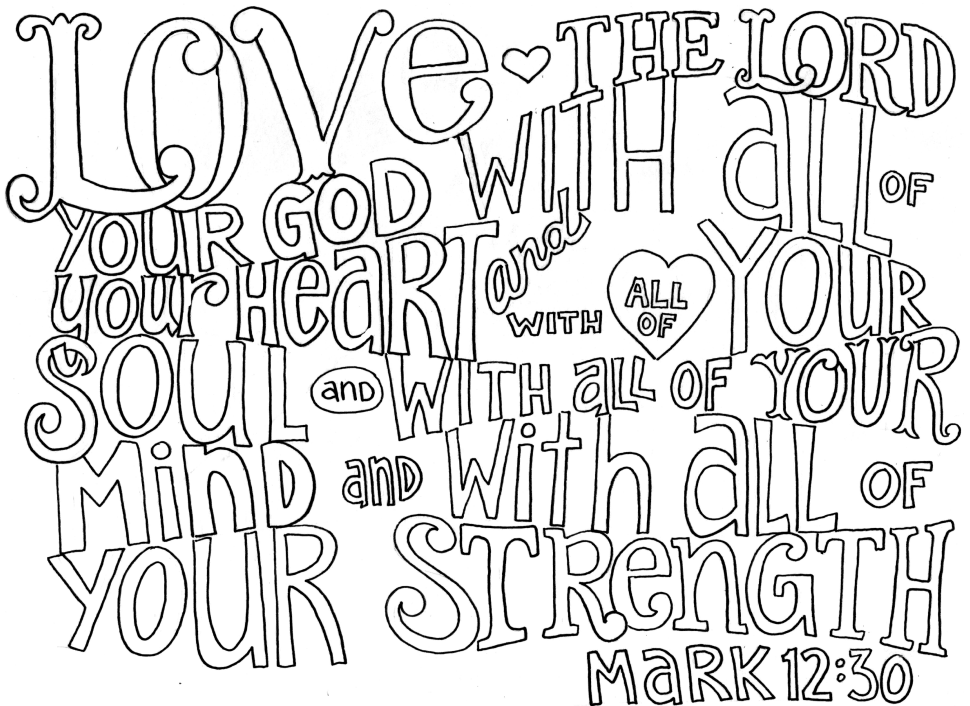 LOVe THE LORD
YOUR GOD WITH aLL OF
your HeaRT and WITH ALL OF YOUR
SOUL and WITH aLL OF YOUR
MinD anD With aLL OF
YOUR STRenGTH
MaRK 12:30